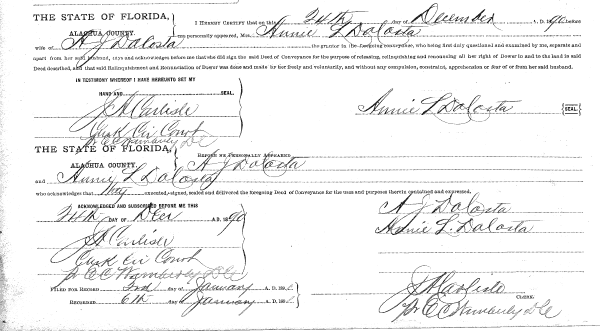 THE STATE OF FLORIDA,
ALACHUA COUNTY.
I HEREBY CERTIFY that on this 24th day of December A. D. 1890 before
me personally appeared, Mrs. Annie L DaCosta
wife of A J DaCosta the grantor in the foregoing conveyance, who being first duly questioned and examined by me, separate and
apart from her said husband, says and acknowledges that she did sign the said Deed of Conveyance for the purpose of releasing, relinquishing and renouncing all her right of Dower in and to the land in said
Deed described, and that said Relinquishment and Renunciation of Dower was done and made by her freely and voluntarily, and without any compulsion, constraint, apprehension or fear of or from her said husband.
IN TESTIMONY WHEREOF I HAVE HEREUNTO SET MY
HAND AND SEAL.
J A Carlisle
Clerk Cir Court
pr E C Wimberly D C
Annie L DaCosta SEAL
THE STATE OF FLORIDA,
ALACHUA COUNTY.
BEFORE ME PERSONALLY APPEARED A J DaCosta
and Annie L DaCosta
who acknowledges that they executed, signed, sealed and delivered the foregoing Deed of Conveyance for the uses and purposes therein contained and expressed.
ACKNOWLEDGED AND SUBSCRIBED BEFORE ME THIS
24th DAY OF Decr A.D. 1890
J A Carlisle
Clerk Cir Court
pr E C Wimberly D C
A J DaCosta
Annie L. DaCosta
FILED FOR RECORD 3rd January A. D. 1891
RECORDED 6th January 1891
J A Carlisle CLERK.
pr E C Wimberly D C